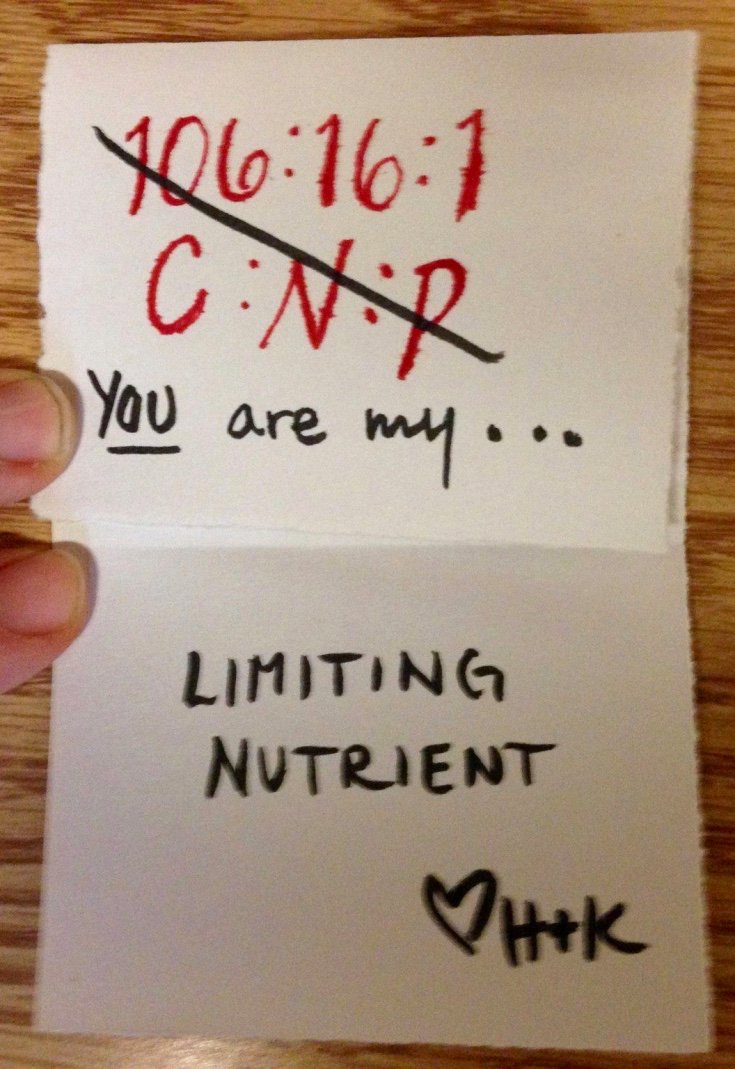 106:16:1
C:N:P
YOU are my...
LIMITING
NUTRIENT
♡H+K